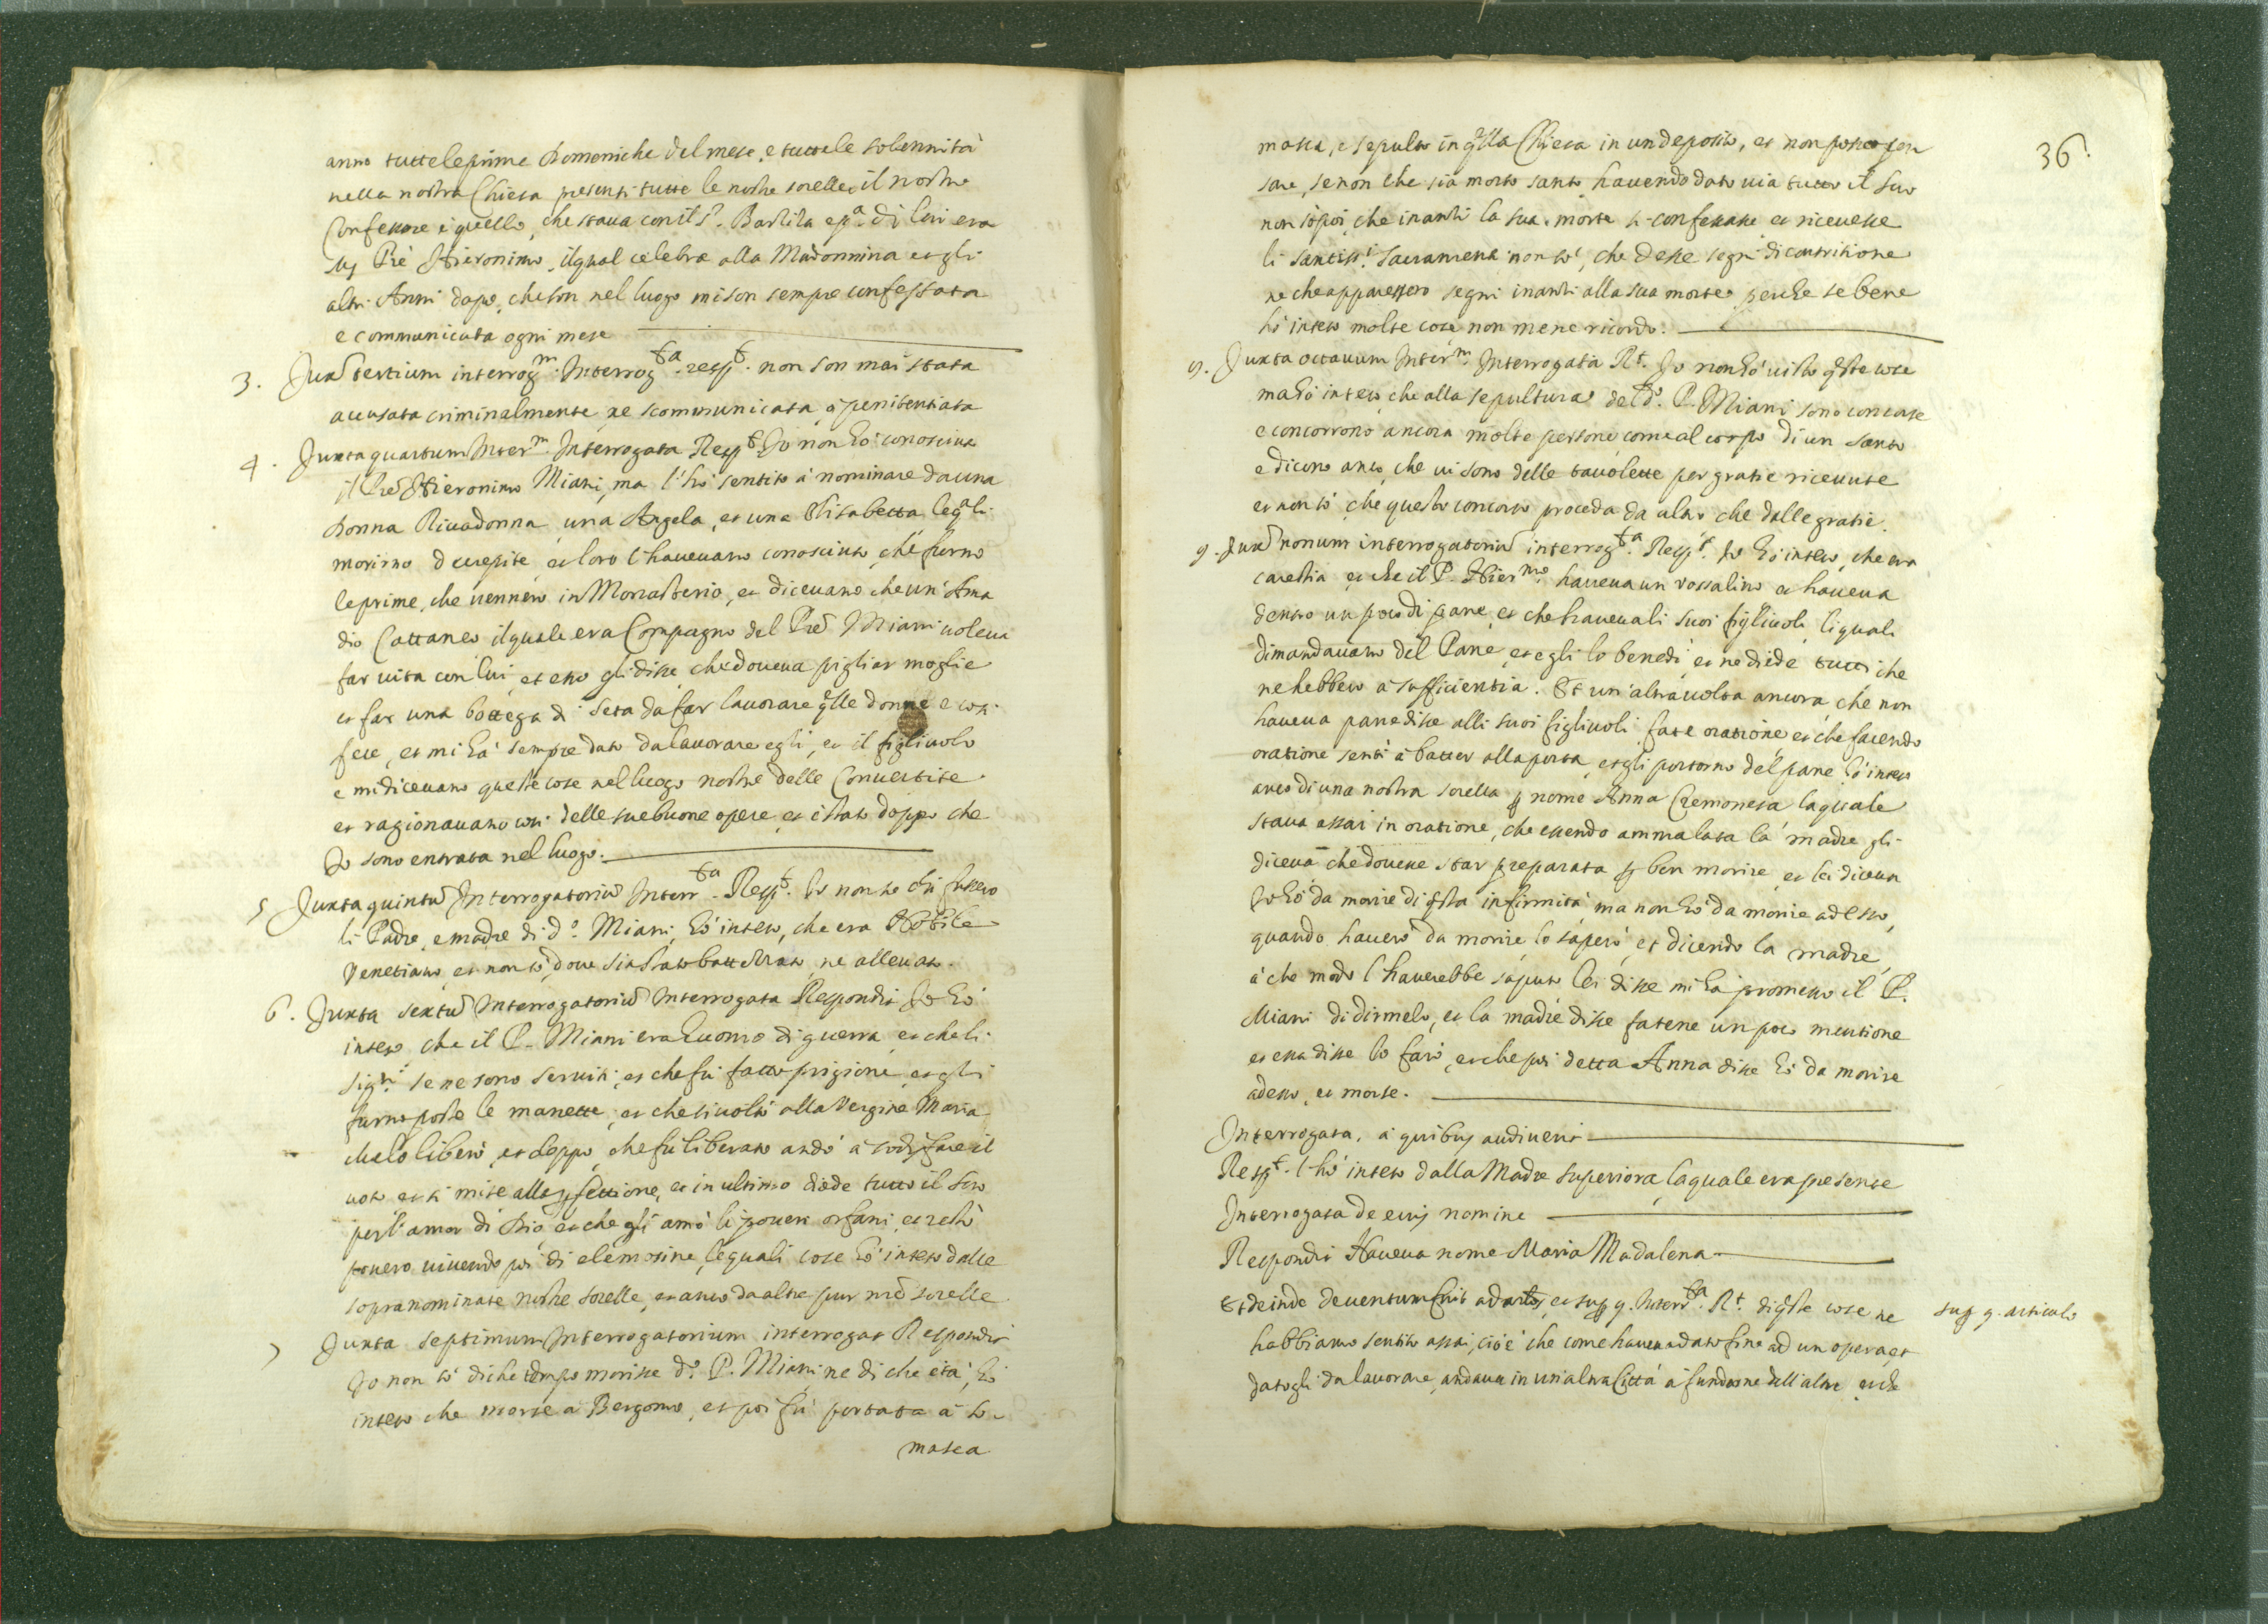 anno tutte le prime Domeniche del mese, e tutte le solennità
nella nostra Chiesa presenti tutte le nostre sorelle, il nostro
Confessore è quello, che stava con il S.r Basilita e p.a di lui era
Mr Prè Hieronimo, il qual celebra alla Madonnina et gli
altri Anni dopo, che son nel luogo mi son sempre confessata
e communicata ogni mese
3. Juxta tertium interrog.m Interrog.ta resp.t non son mai stata
accusata criminalmente, ne scommunicata, o penitentiata
4. Juxta quartum Inter.m Interrogata Resp.t Io non hò conosciuto
il Prè Hieronimo Miani, ma l'hò sentito à nominare da una
Donna Rivadonna, una Angela, et una Elisabetta leq.ali
morirno decrepite, et loro l'havevano conosciuto, che furno
le prime, che vennero in Monasterio, et dicevano che un Ama
dio Cattaneo il quale era Compagno del Prè Miani voleva
far vita con lui, et esso gli disse che doveva pigliar moglie
et far una bottega di seta da far lavorare q.lle donne e così
fece, et mi hà sempre dato da lavorare egli, et il figlivolo
e mi dicevano queste cose nel luogo nostro delle Convertite
et ragionavano così delle sue buone opere, et è stato doppo che
Io sono entrata nel luogo.
5 Juxta quintū Interrogatoriū Interr.ta Resp.t Io non so chi fussero
li Padre, e madre di d.o Miani, hò inteso, che era Nobile
Venetiano, et non sò, dove sia stato battezzato, ne allevato.
6. Juxta sextū Interrogatoriū Interrogata Respondit Io hò
inteso che il P. Miani era huomo di guerra, et che li
Sig.ri se ne sono serviti, et che fù fatto prigione, et gli
furno poste le manette, et che si voltò alla Vergine Maria
che lo liberò, et doppo, che fù liberato andò à sodisfare il
voto et si mise alla pfettione, et in ultimo diede tutto il suo
per l'amor di Dio, et che gli amò li poveri orfani, et restò
povero vivendo poi di elemosine, le quali cose hò inteso dalle
sopranominate nostre sorelle, et anco da altre pur nre sorelle
7 Juxta septimum Interrogatorium interrogat Respondit
Io non sò di che tempo morisse d.o P. Miani ne di che età, hò
inteso che morse à Bergomo, et poi fù portata à So-
masca
36.
masca, e sepulto in q.lla Chiesa in un deposito, et non posso pen
sare, se non che sia morto santo havendo dato via tutto il suo
non sò poi, che inanti la sua morte si confessasse et ricevesse
li santiss.i Sacramenti non sò, che desse segni di contritione
ne che apparessero segni inanti alla sua morte, perche se bene
hò inteso molte cose non me ne ricordo.
9. Juxta octavum Inter.m Interrogata R.t Io non hò visto q.ste cose
ma hò inteso, che alla sepultura del d.o P. Miani sono concorse
e concorrono ancora molte persone come al corpo di un Santo
e dicono anco, che vi sono delle tavolette per gratie ricevute
et non sò, che questo concorso proceda da altro che dalle gratie.
9. Juxta nonum interrogatoriū interrog.ta Resp.t Io hò inteso, che era
carestia, et che il P. Hier.mo haveva un vossalino et haveva
dentro un poco di pane, et che haveva li suoi figlivoli, li quali
dimandavano del Pane, et egli lo benedì, et ne diede tutti che
ne hebbero à sufficientia. Et un'altra volta ancora, che non
haveva pane disse alli suoi figlivoli, fate oratione et che facendo
oratione sentì à batter alla porta, et gli portorno del pane, hò inteso
anco di una nostra sorella p nome Anna Cremonesa la quale
stava assai in oratione, che essendo ammalata la madre gli
diceva che dovesse star preparata p ben morire, et lei diceva
Io hò da morire di q.sta infirmità, ma non hò da morire adesso,
quando haverò da morire lo saperò, et dicendo la madre,
à che modo l'haverebbe saputo lei disse mi hà promesso il P.
Miani di dirmelo, et la madre disse fatene un poco mentione
et essa disse lo farò, et che poi detta Anna disse hò da morire
adesso, et morse.
Interrogata, à quibus audiverit
Resp.t l'hò inteso dalla Madre superiora, la quale era presente
Interrogata de eius nomine
Respondit Haveva nome Maria Madalena
Et deinde deventum fuit ad artos, et sup 9. Interr.ta R.t di q.ste cose ne
habbiamo sentito assai, cioè che come haveva dato fine ad un opera, et
datogli da lavorare, andava in un'altra Città à fundarne dell'altre, et che
sup 9. articulo